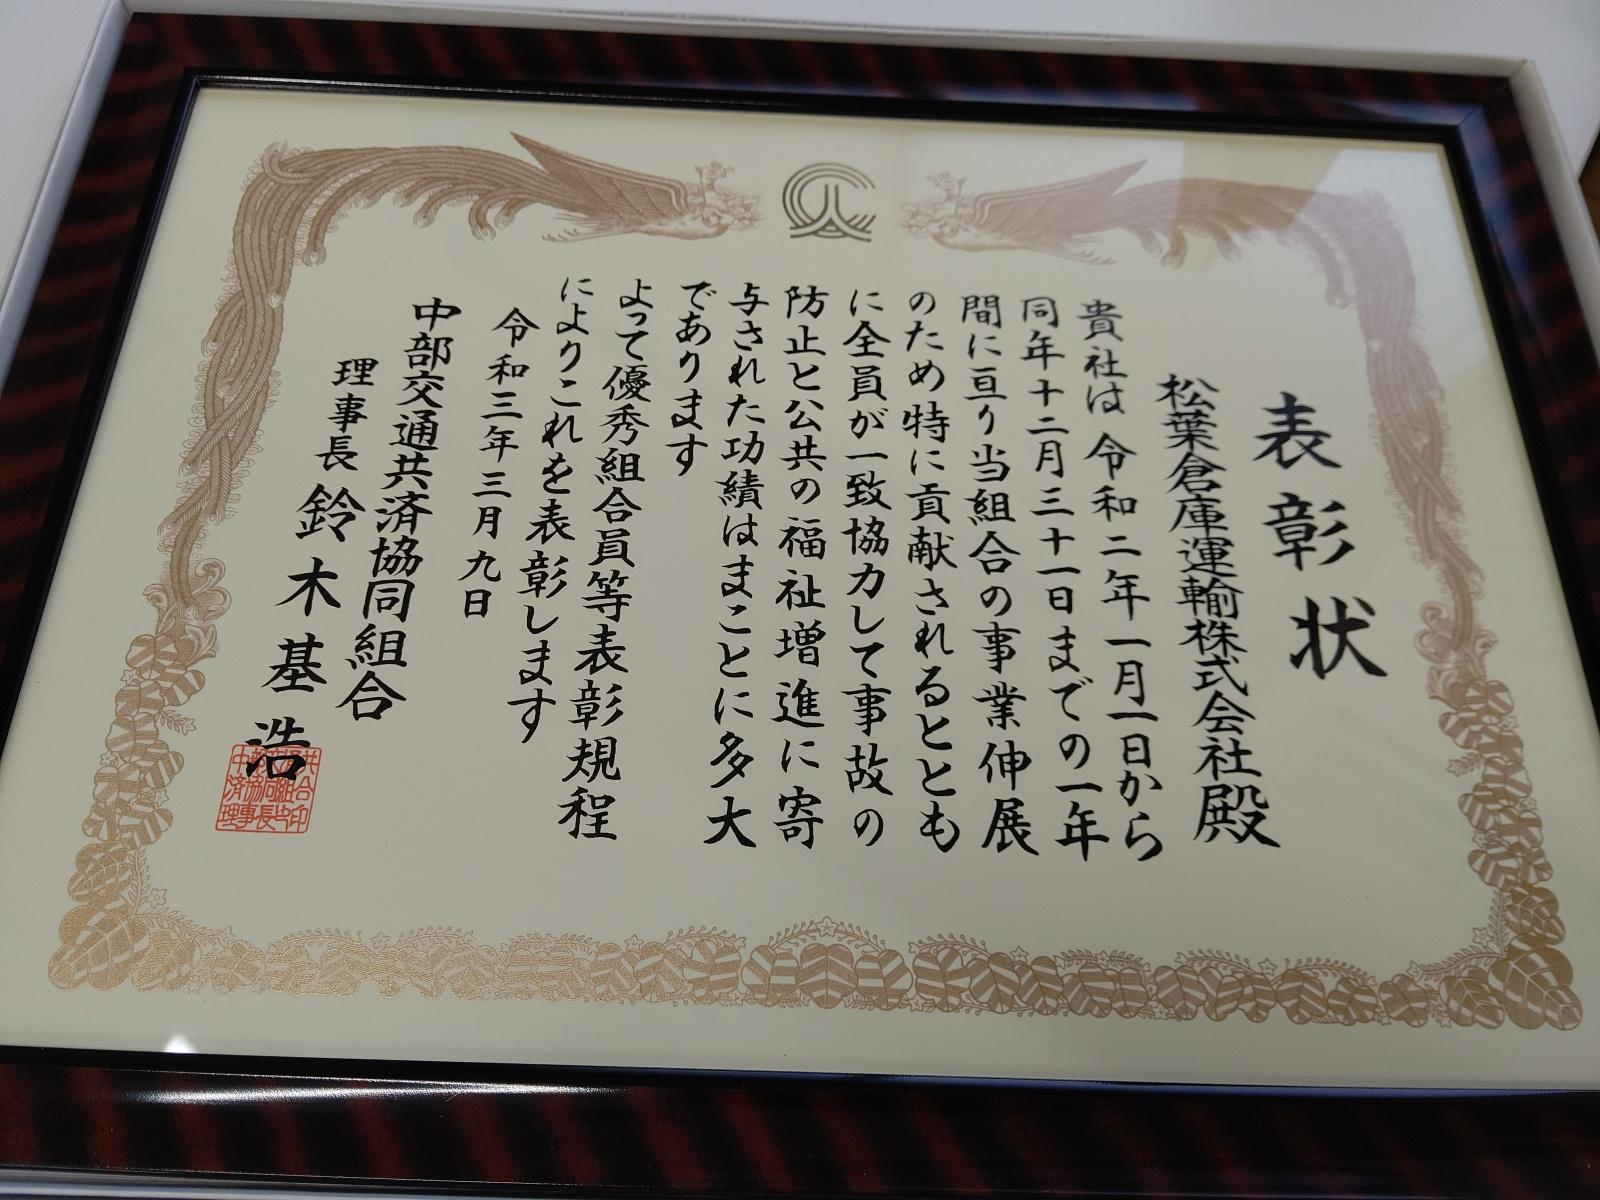 表彰状
松葉倉庫運輸株式会社殿
貴社は令和二年一月一日から
同年十二月三十一日までの一年
間に亘り当組合の事業伸展
のため特に貢献されるととも
に全員が一致協力して事故の
防止と公共の福祉増進に寄
与された功績はまことに多大
であります
よって優秀組合員等表彰規程
によりこれを表彰します
令和三年三月九日
中部交通共済協同組合
理事長 鈴木基浩
中部交通共
済協同組合
理事長之印